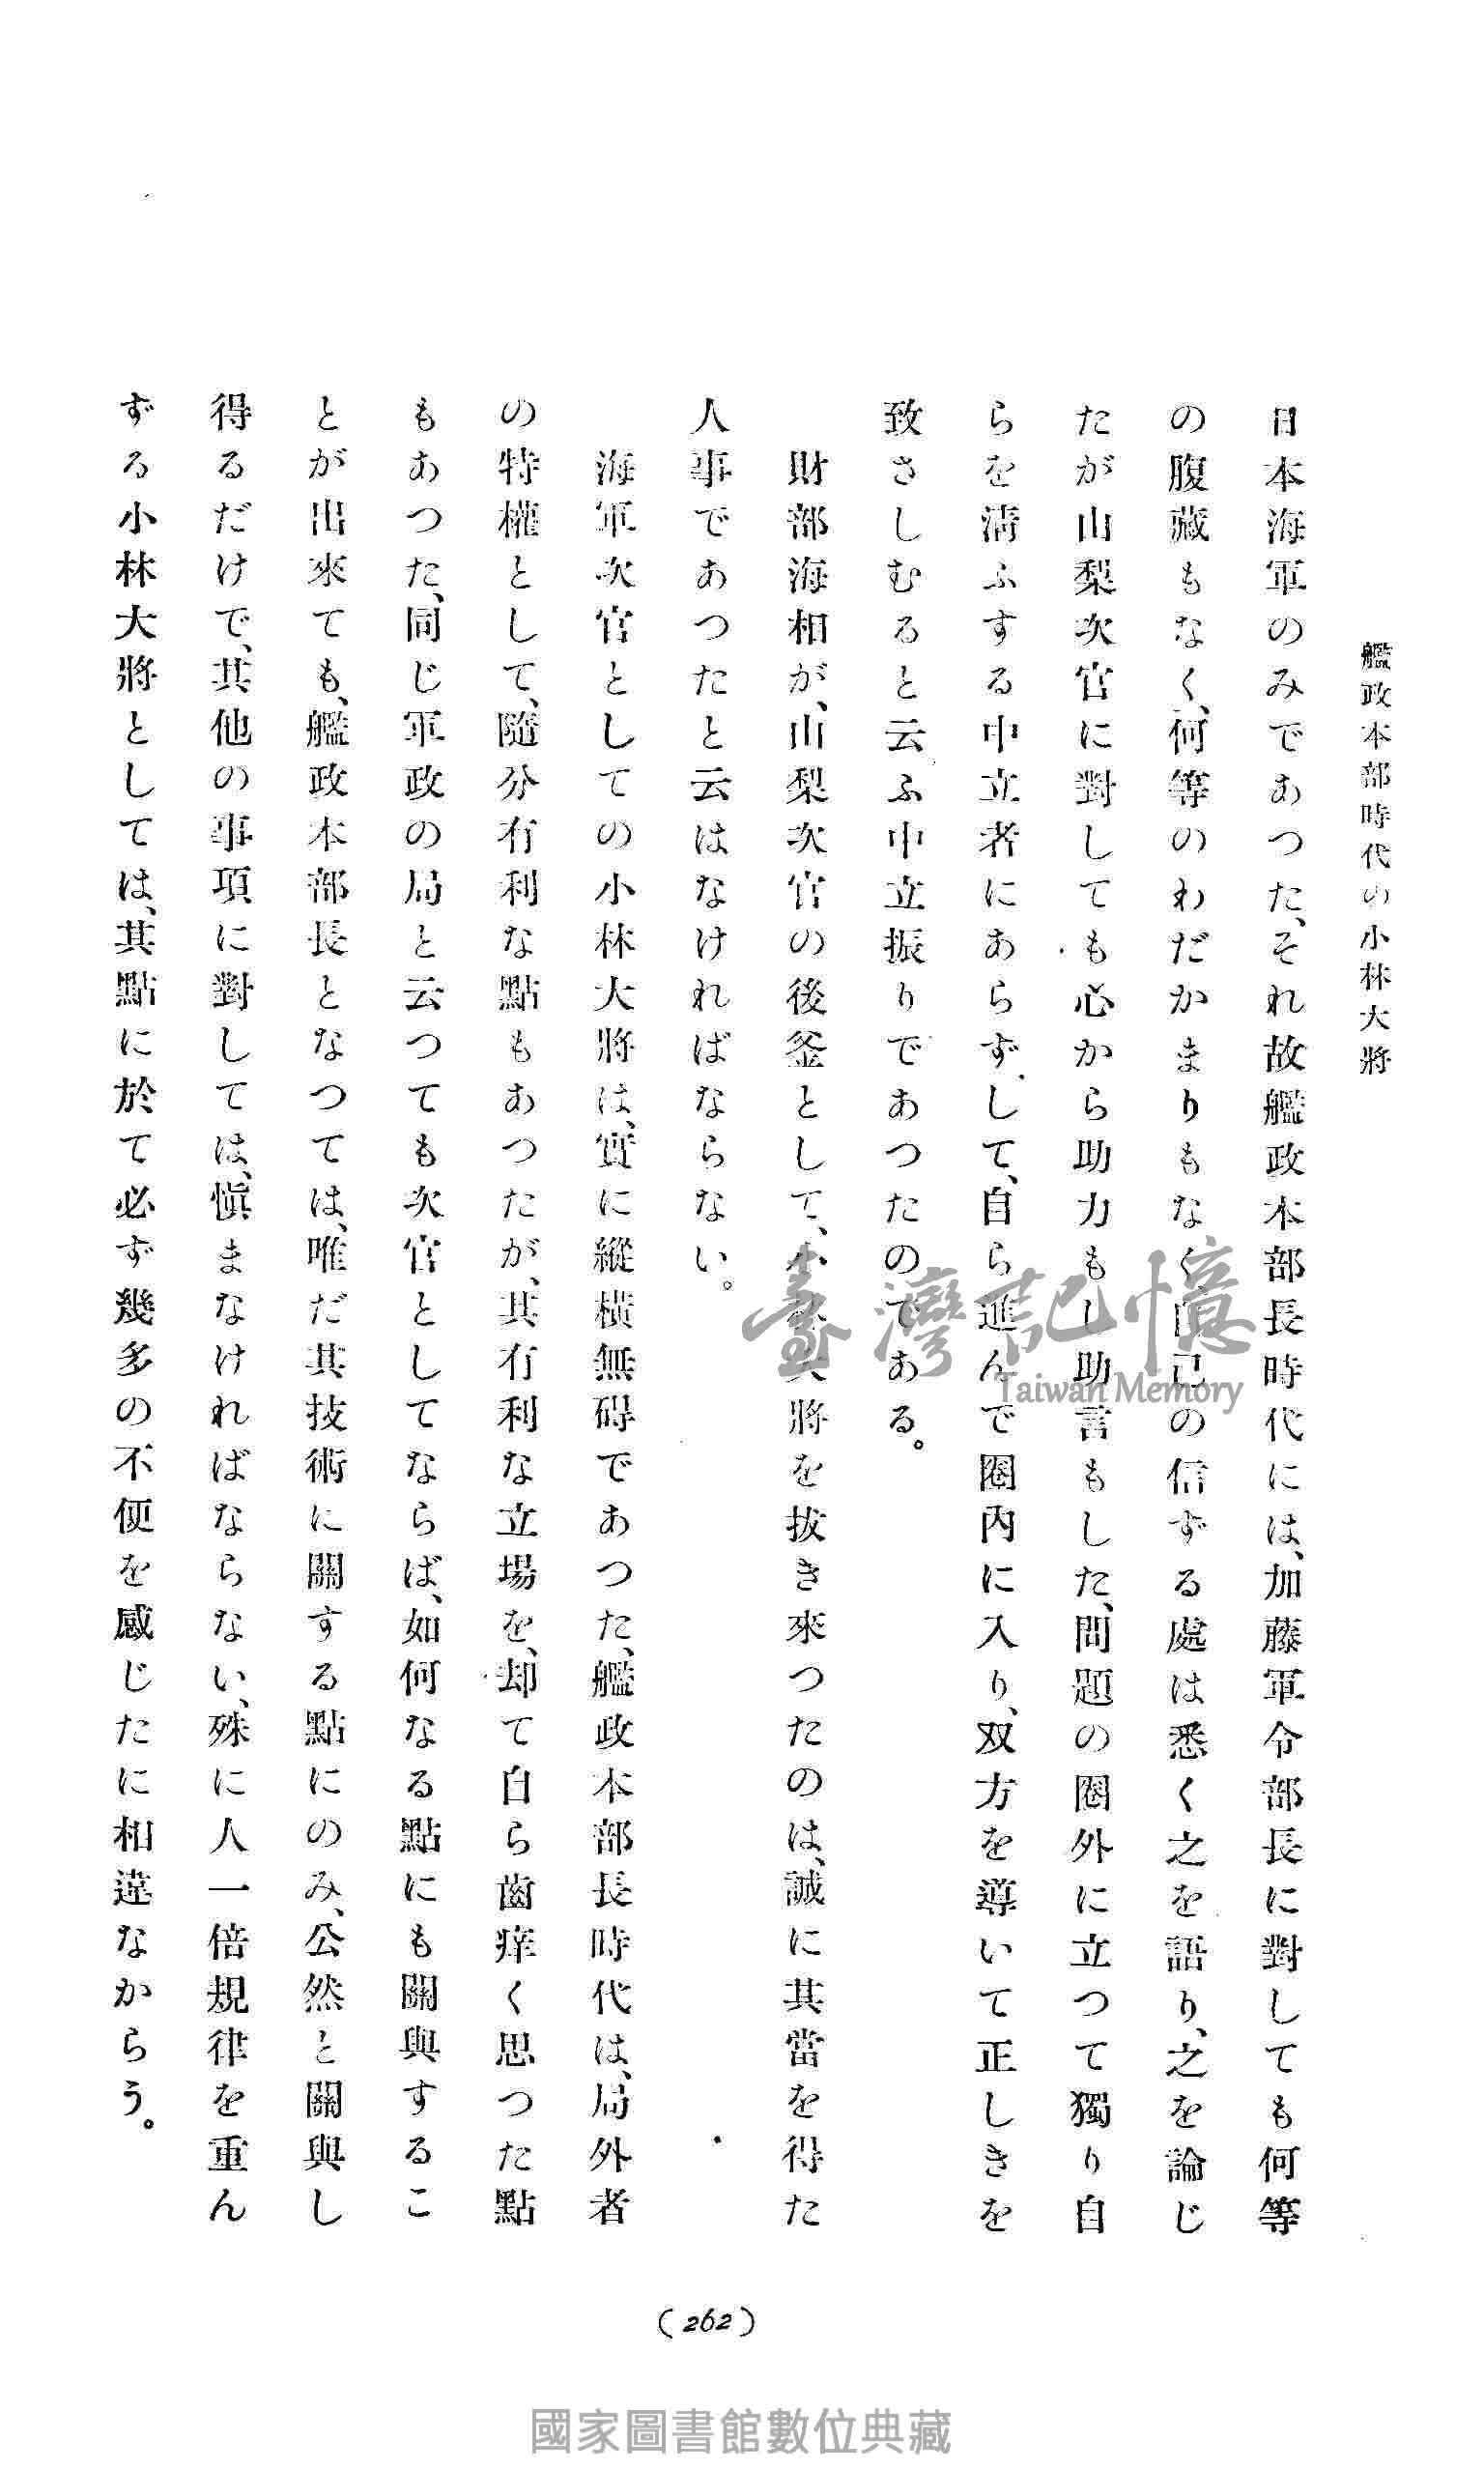 艦政本部時代の小林大將
日本海軍のみであつた、それ故艦政本部長時代には、加藤軍令部長に對しても何等
の腹藏もなく、何等のわだかまりもなく自己の信ずる處は悉く之を語り、之を論じ
たが山梨次官に對しても心から助力もし助言もした、問題の圈外に立つて獨り自
らを淸ふする中立者にあらずして、自ら進んで圈内に入り、双方を導いて正しきを
致さしむると云ふ中立振りであつたのである。
財部海相が、山梨次官の後釜として、小林大將を拔き來つたのは、誠に其當を得た
人事であつたと云はなければならない。
海軍次官としての小林大將は、實に縱橫無碍であつた、艦政本部長時代は、局外者
の特權として、隨分有利な點もあつたが、其有利な立場を、却て自ら齒痒く思つた點
もあつた、同じ軍政の局と云つても次官としてならば、如何なる點にも關與するこ
とが出來ても、艦政本部長となつては、唯だ其技術に關する點にのみ、公然と關與し
得るだけで、其他の事項に對しては、愼まなければならない、殊に人一倍規律を重ん
ずる小林大將としては、其點に於て必ず幾多の不便を感じたに相違なからう。
(262)
臺灣記憶
Taiwan Memory
國家圖書館數位典藏